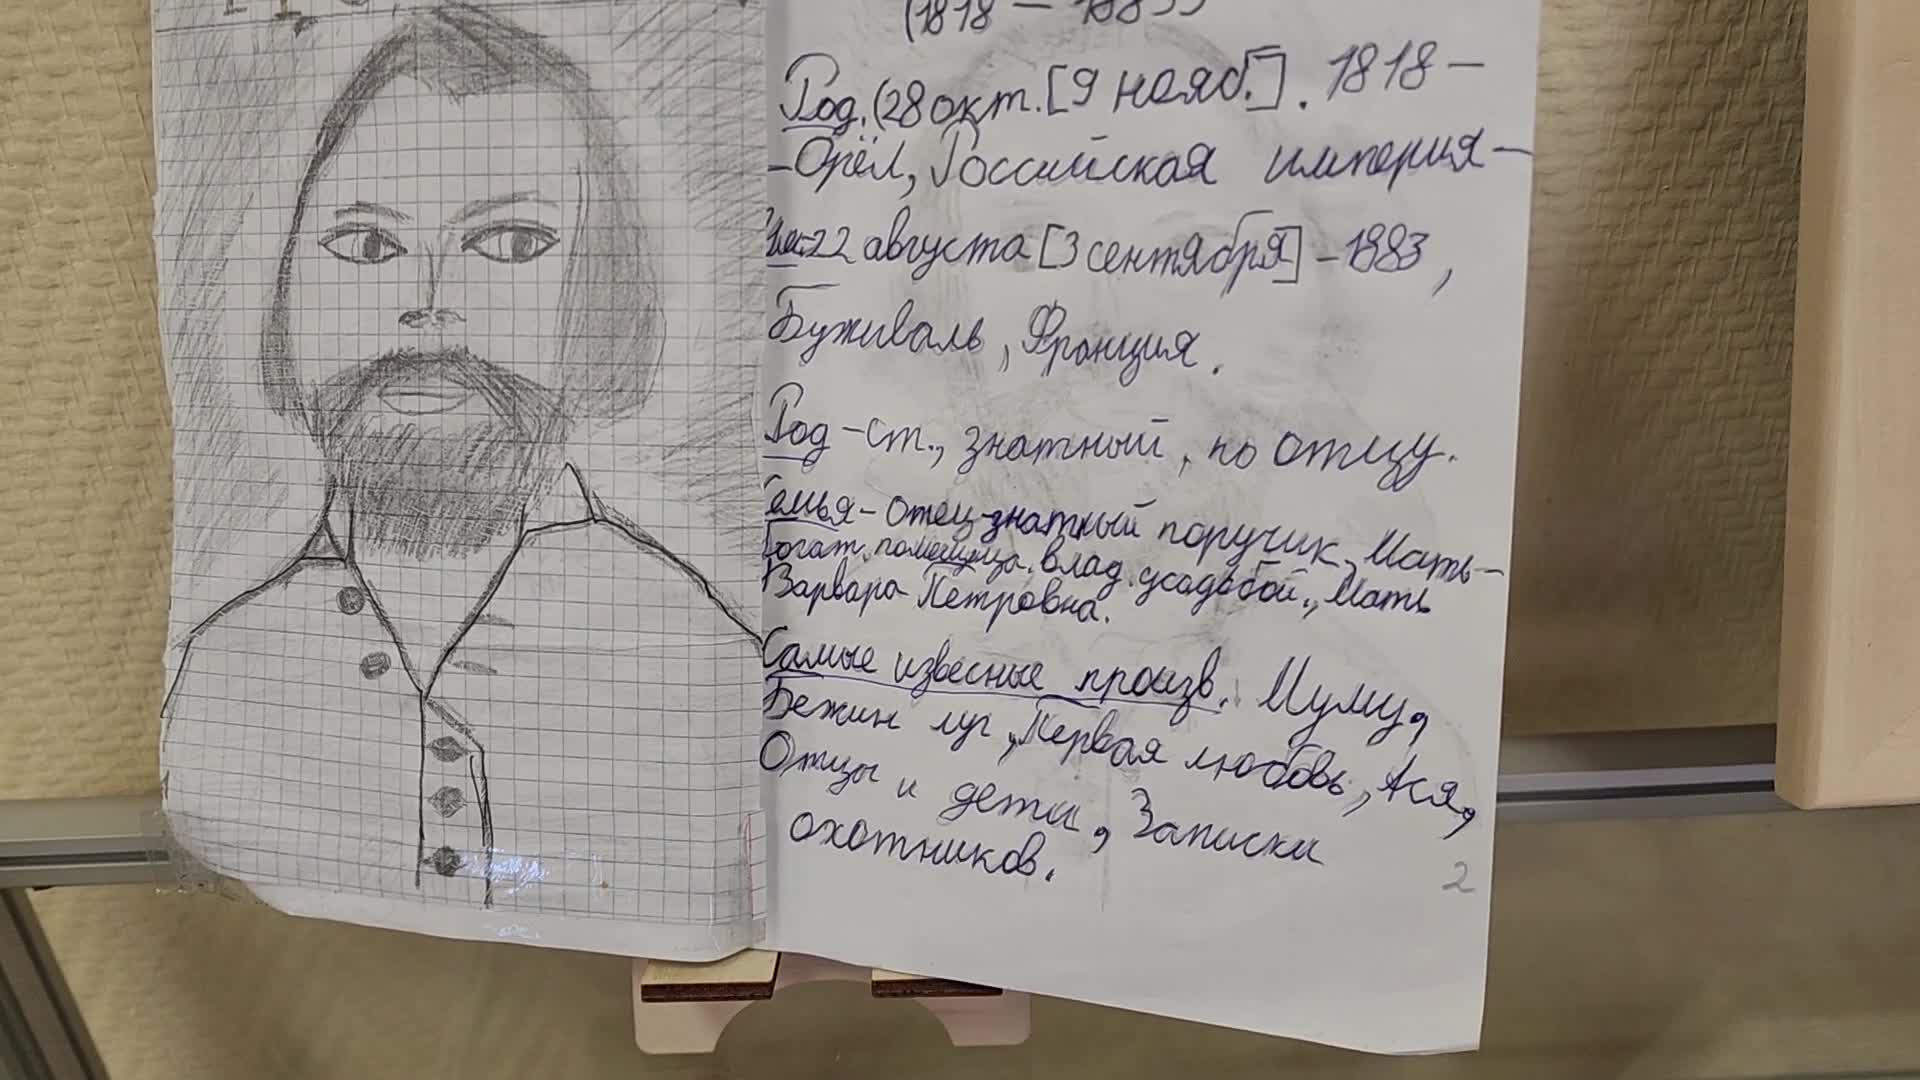 (1818 – 1883)
Род. (28 окт. [9 нояб.]. 1818 –
– Орёл, Российская империя –
22 августа [3 сентября] – 1883,
Буживаль, Франция.
Род – ст., знатный, по отцу.
Семья – Отец-знатный поручик, Мать –
Богат. помещица. влад. усадьбой., Мать
Варвара Петровна.
Самые извесные произв. Муму,
Бежин луг, Первая любовь, Ася,
Отцы и дети, Записки
охотников.
2